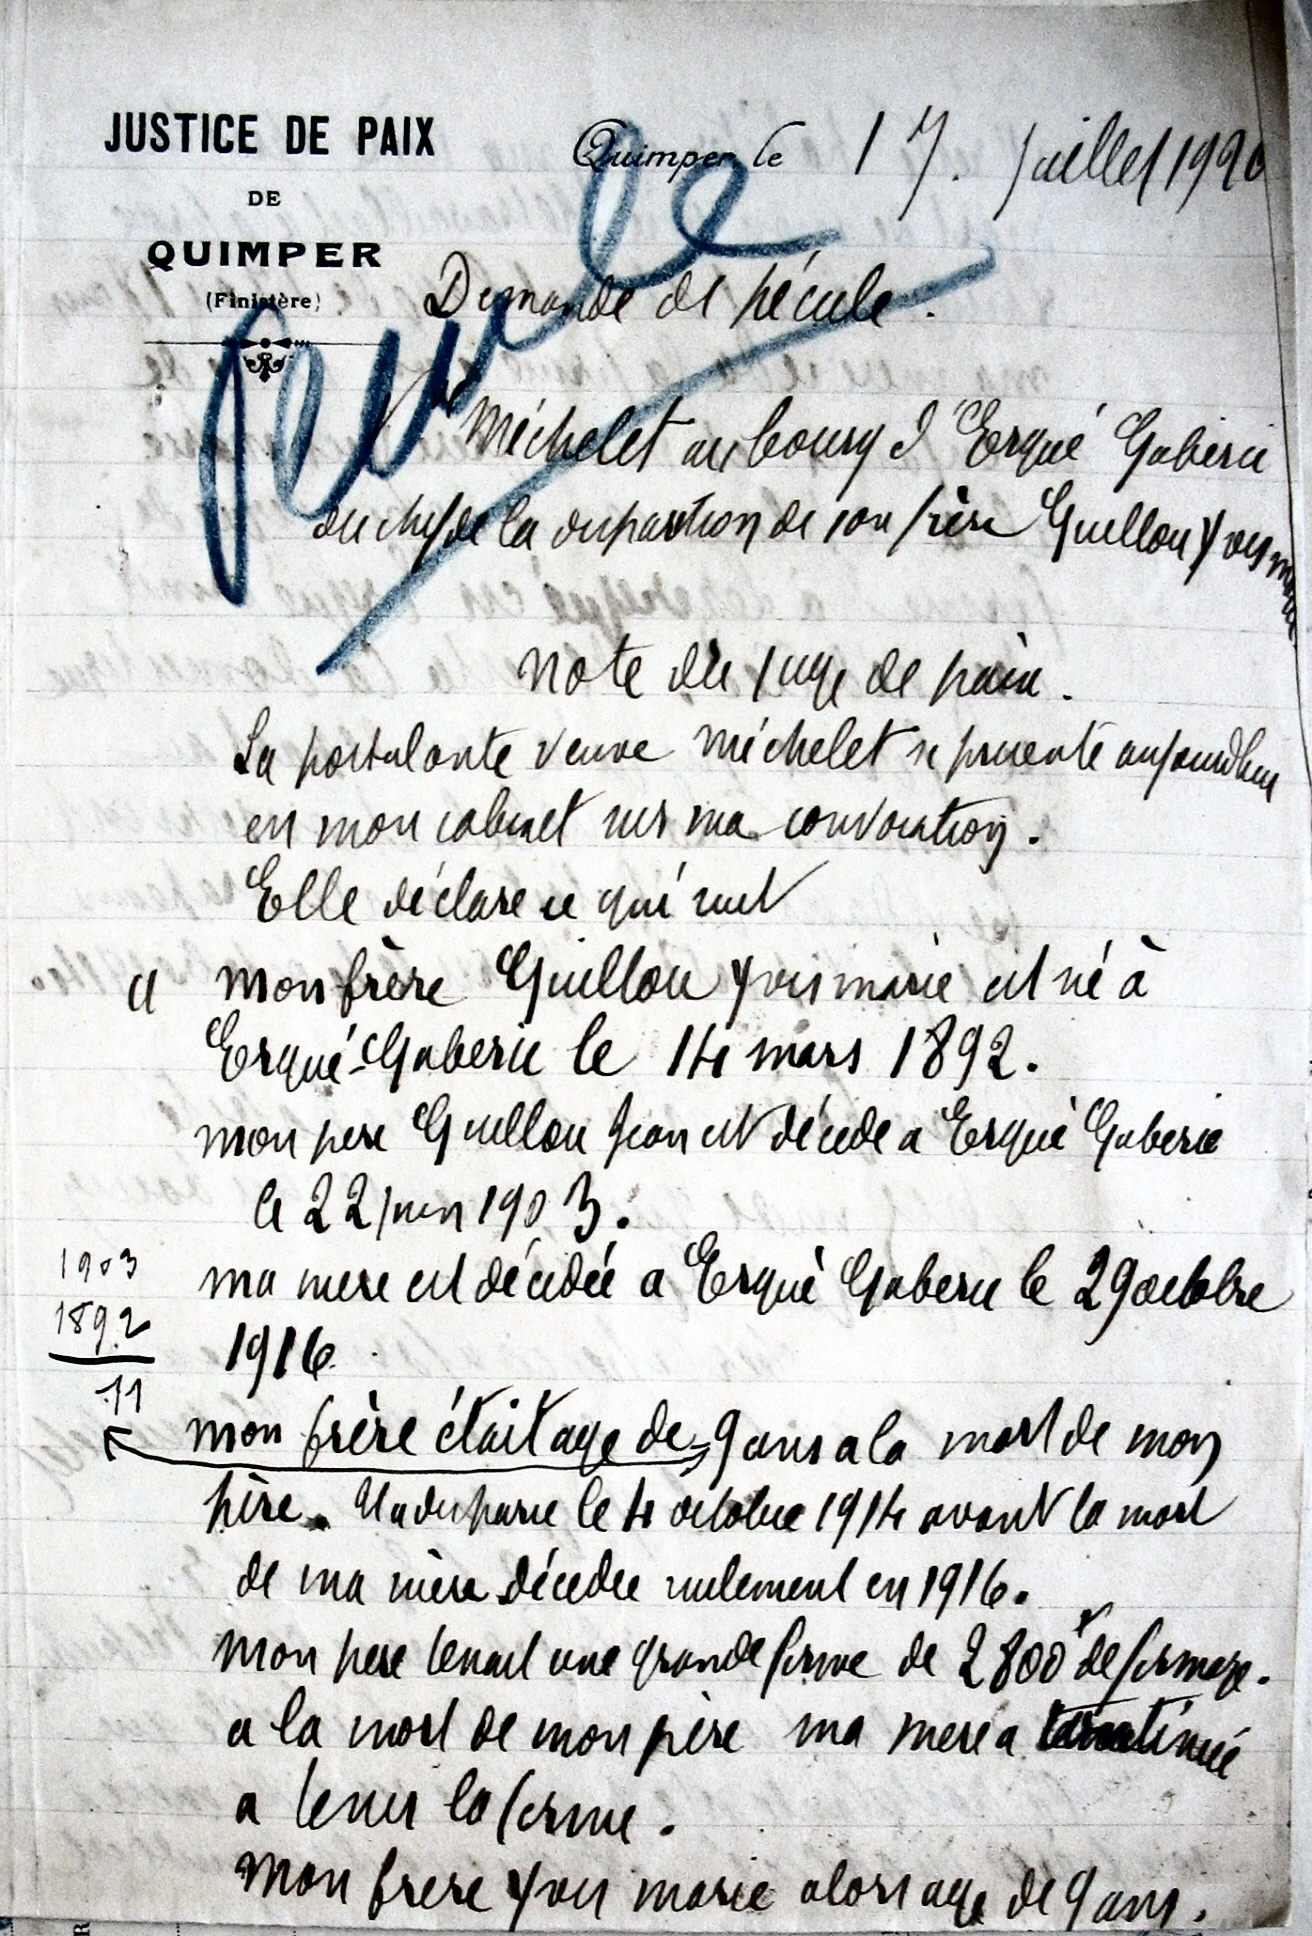 JUSTICE DE PAIX
DE
QUIMPER
(Finistère)
Quimper, le 17. juillet 1920
Demande de pécule.
Méchelet au bourg d'Ergué Gaberic
du chef de la disparition de son frère Guillou Yves marie
Note du juge de paix.
La postulante veuve Méchelet se présente aujourdhui
en mon cabinet sur ma convocation.
Elle déclare ce qui suit
" mon frère Guillou Yves marie est né à
Ergué-Gaberic le 14 mars 1892.
mon pere Guillou Jean est décédé a Ergué Gaberic
le 22 juin 1903.
ma mere est décédée a Ergué Gaberic le 29 octobre
1916.
1903
1892
11
mon frère était age de 9 ans a la mort de mon
père. Il a disparu le 4 octobre 1914 avant la mort
de ma mère décédée seulement en 1916.
mon pere tenait une grande ferme de 2800 f de fermage.
a la mort de mon père ma mere a continué
a tenir la ferme.
Mon frere Yves marie alors age de 9 ans.